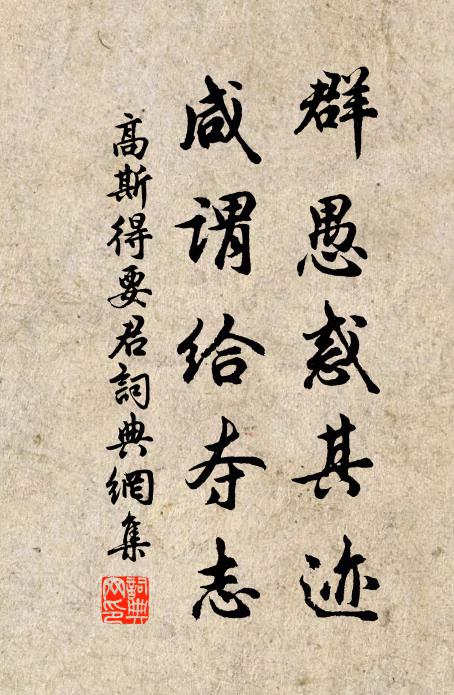 群愚惑其迹
咸谓给夺志
高斯得要君詞典網集
詞典网印